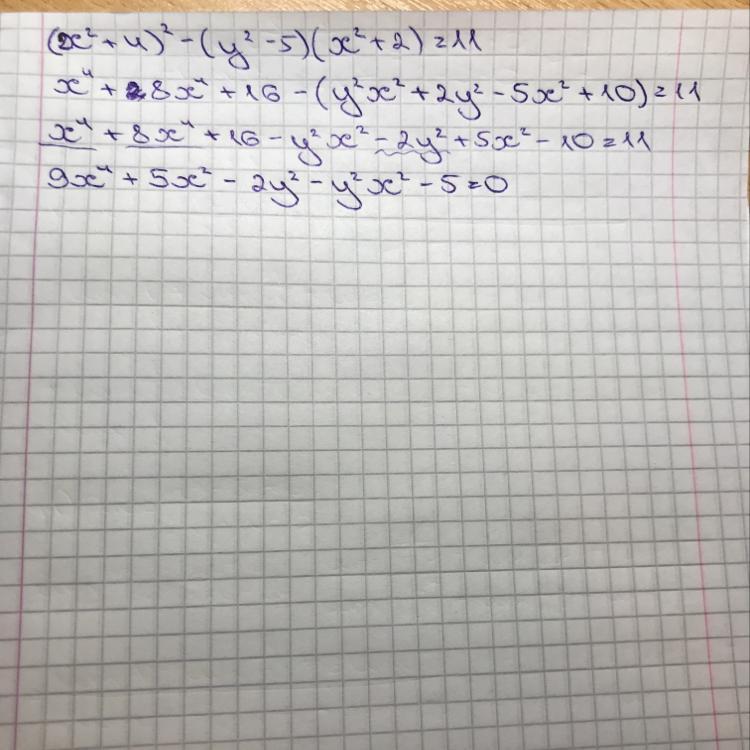 (x² + 4)² - (y² - 5)(x² + 2) = 11
x⁴ + 8x⁴ + 16 - (y²x² + 2y² - 5x² + 10) = 11
x⁴ + 8x⁴ + 16 - y²x² - 2y² + 5x² - 10 = 11
9x⁴ + 5x² - 2y² - y²x² - 5 = 0